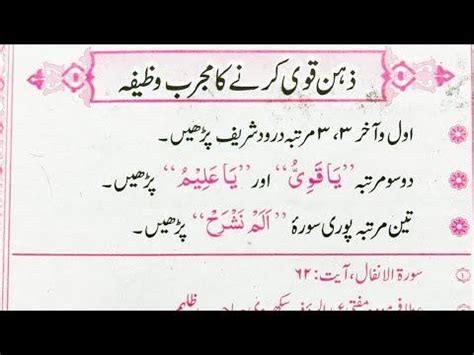 ذہن قوی کرنے کا مجرب وظیفہ
اول و آخر ۳، ۳ مرتبہ درود شریف پڑھیں۔
دو سو مرتبہ ”یَا قَوِیُّ“ اور ”یَا عَلِیْمُ“ پڑھیں۔
تین مرتبہ پوری سورۂ ”اَلَمْ نَشْرَحْ“ پڑھیں۔
۱ سورۃ الانفال، آیت: ۶۲